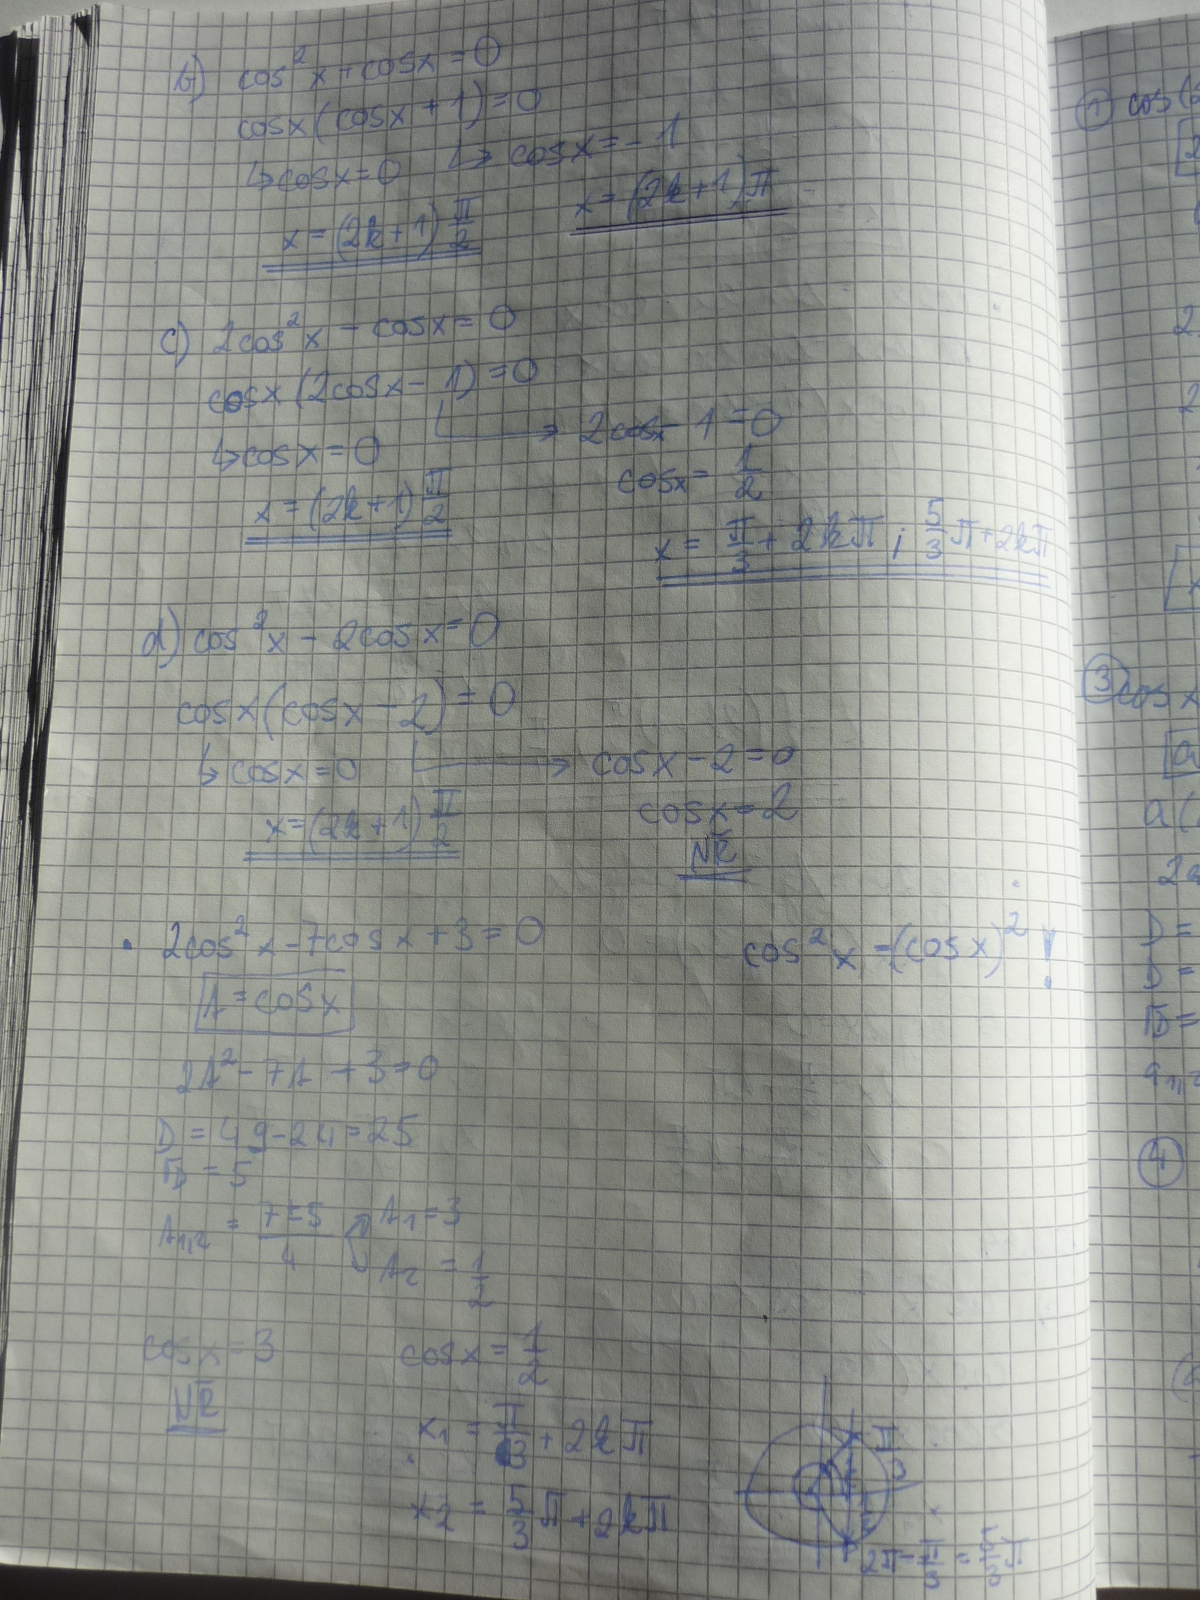 b) cos²x + cosx = 0
cosx(cosx + 1) = 0
↳ cosx = 0 ↳ cosx = -1
x = (2k+1)π/2 x = (2k+1)π
c) 2cos²x - cosx = 0
cosx(2cosx - 1) = 0
↳ cosx = 0 → 2cosx - 1 = 0
cosx = 1/2
x = (2k+1)π/2 x = π/3 + 2kπ ; 5/3π + 2kπ
d) cos²x - 2cosx = 0
cosx(cosx - 2) = 0
↳ cosx = 0 → cosx - 2 = 0
cosx = 2
x = (2k+1)π/2 NŘ
• 2cos²x - 7cosx + 3 = 0 cos²x = (cosx)² !
A = cosx
2A² - 7A + 3 = 0
D = 49 - 24 = 25
√D = 5
A1,2 = (7±5)/4 A1 = 3
A2 = 1/2
cosx = 3 cosx = 1/2
NŘ
x1 = π/3 + 2kπ
x2 = 5/3π + 2kπ
π/3
2π - π/3 = 5/3π
① cos(
2
2
③ cosx
a
a(
2a
D =
D =
√D =
④